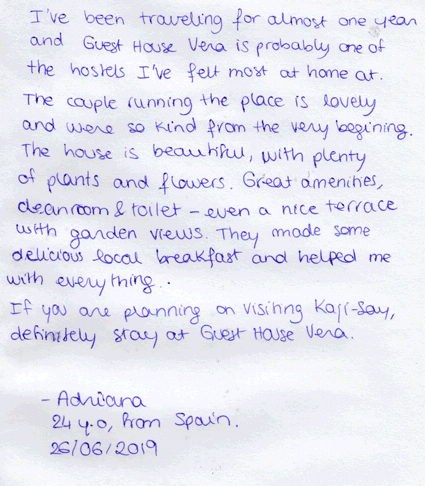 I've been traveling for almost one year
and Guest House Vera is probably one of
the hostels I've felt most at home at.
The couple running the place is lovely
and were so kind from the very begining.
The house is beautiful, with plenty
of plants and flowers. Great amenities,
clean room & toilet - even a nice terrace
with garden views. They made some
delicious local breakfast and helped me
with everything.
If you are planning on visiting Kaji-Say,
definitely stay at Guest House Vera.
- Adriana
24 y.o, from Spain.
26/06/2019